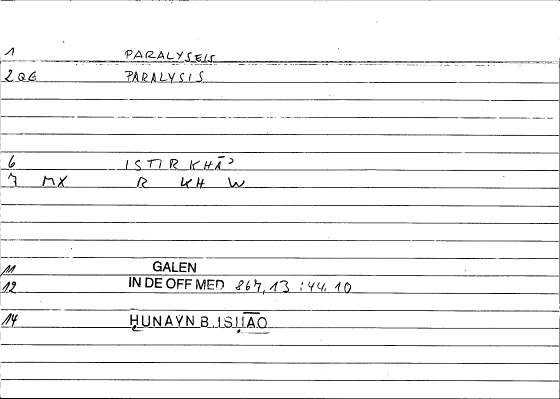 1 PARALYSEIS
2 QG PARALYSIS
6 ISTIRKHĀʾ
7 MX R KH W
11 GALEN
12 IN DE OFF MED 867,13 : 44.10
14 ḤUNAYN B. ISḤĀQ